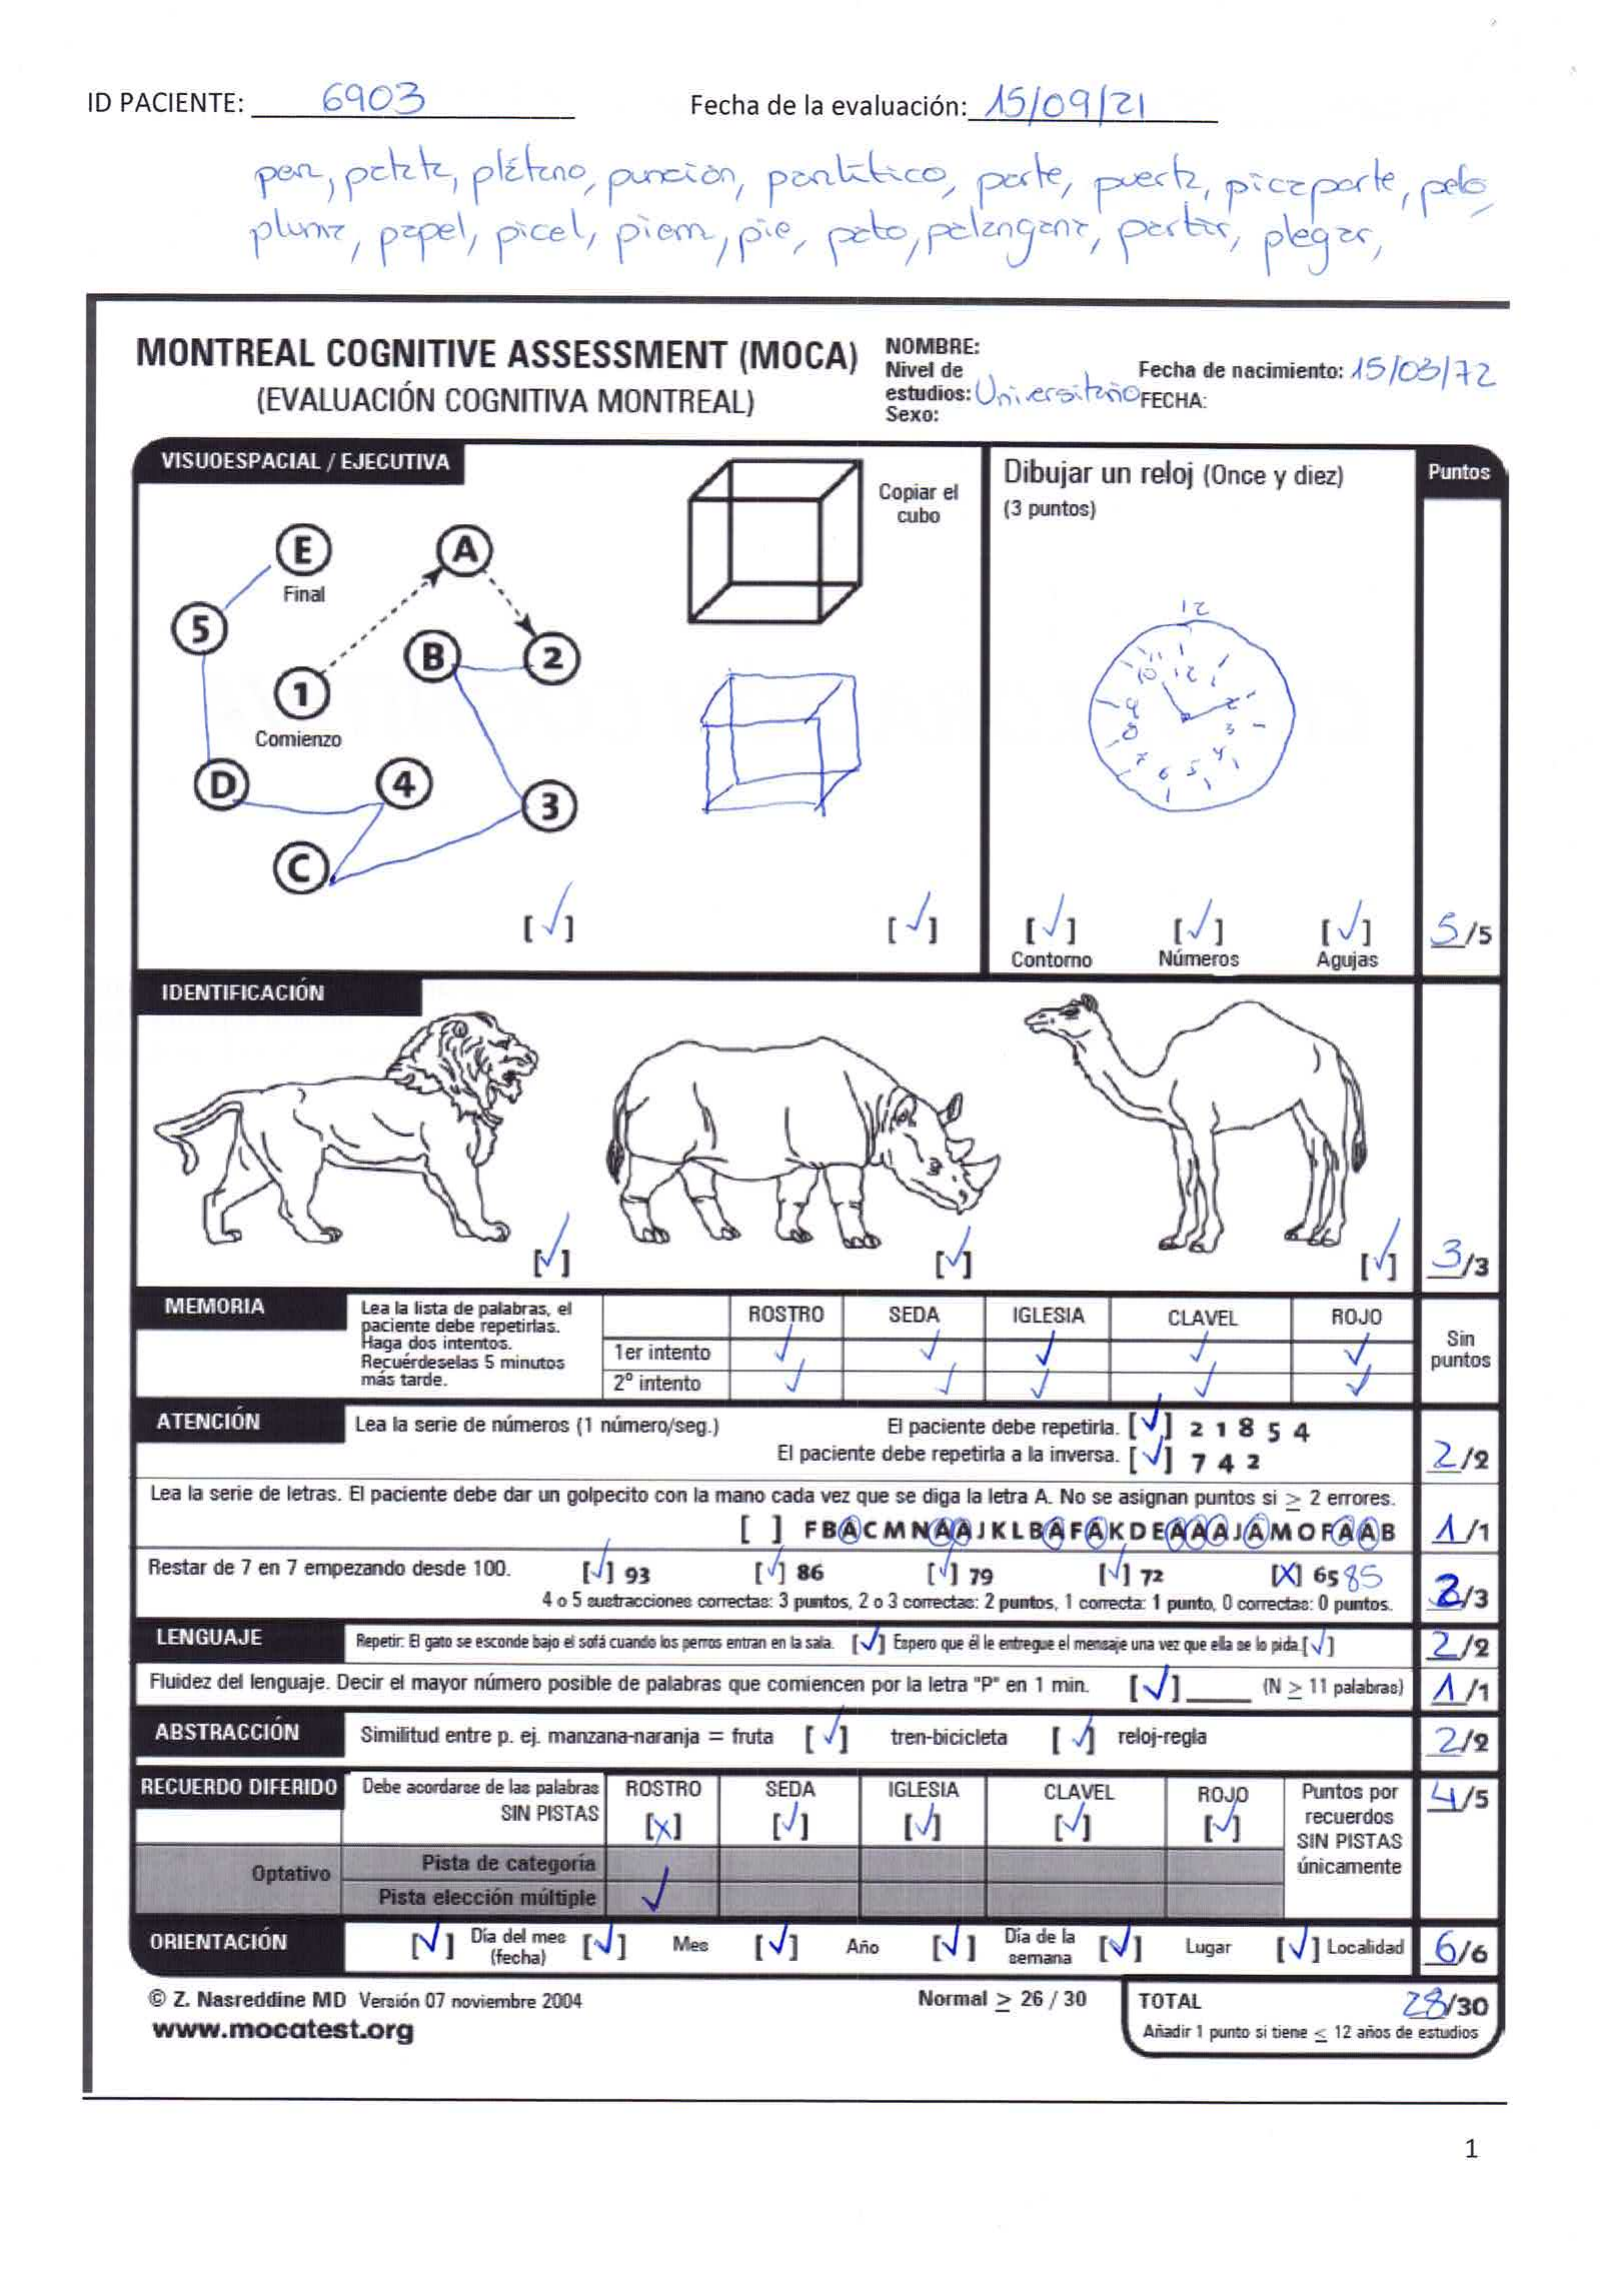 ID PACIENTE: 6903 Fecha de la evaluación: 15/09/21
pan, patata, plátano, punción, paralítico, parte, puerta, picaporte, pelo,
pluma, papel, picel, pierna, pie, pato, palangana, partir, plegar,
MONTREAL COGNITIVE ASSESSMENT (MOCA)
(EVALUACIÓN COGNITIVA MONTREAL)
NOMBRE:
Nivel de estudios: Universitario
Sexo:
Fecha de nacimiento: 15/03/72
FECHA:
VISUOESPACIAL / EJECUTIVA
Copiar el cubo
Dibujar un reloj (Once y diez)
(3 puntos)
Puntos
E
Final
A
5
B
2
1
Comienzo
D
4
3
C
12
11
10 12 1
9 2
8 3
7 6 5 4
[✓] [✓] [✓] [✓] [✓] 5/5
Contorno Números Agujas
IDENTIFICACIÓN
[✓] [✓] [✓] 3/3
MEMORIA
Lea la lista de palabras, el
paciente debe repetirlas.
Haga dos intentos.
Recuérdeselas 5 minutos
más tarde.
ROSTRO SEDA IGLESIA CLAVEL ROJO
1er intento ✓ ✓ ✓ ✓ ✓
2º intento ✓ ✓ ✓ ✓ ✓
Sin puntos
ATENCIÓN
Lea la serie de números (1 número/seg.) El paciente debe repetirla. [✓] 2 1 8 5 4
El paciente debe repetirla a la inversa. [✓] 7 4 2 2/2
Lea la serie de letras. El paciente debe dar un golpecito con la mano cada vez que se diga la letra A. No se asignan puntos si ≥ 2 errores.
[ ] F B A C M N A A J K L B A F A K D E A A A J A M O F A A B 1/1
Restar de 7 en 7 empezando desde 100. [✓] 93 [✓] 86 [✓] 79 [✓] 72 [X] 65 85
4 o 5 sustracciones correctas: 3 puntos, 2 o 3 correctas: 2 puntos, 1 correcta: 1 punto, 0 correctas: 0 puntos. /3
LENGUAJE
Repetir: El gato se esconde bajo el sofá cuando los perros entran en la sala. [✓] Espero que él le entregue el mensaje una vez que ella se lo pida.[✓] 2/2
Fluidez del lenguaje. Decir el mayor número posible de palabras que comiencen por la letra "P" en 1 min. [✓]____ (N ≥ 11 palabras) 1/1
ABSTRACCIÓN
Similitud entre p. ej. manzana-naranja = fruta [✓] tren-bicicleta [✓] reloj-regla 2/2
RECUERDO DIFERIDO
Debe acordarse de las palabras
SIN PISTAS
ROSTRO SEDA IGLESIA CLAVEL ROJO
[X] [✓] [✓] [✓] [✓]
Puntos por
recuerdos
SIN PISTAS
únicamente
4/5
Optativo
Pista de categoría
Pista elección múltiple ✓
ORIENTACIÓN
[✓] Día del mes (fecha) [✓] Mes [✓] Año [✓] Día de la semana [✓] Lugar [✓] Localidad 6/6
© Z. Nasreddine MD Versión 07 noviembre 2004
www.mocatest.org
Normal ≥ 26 / 30
TOTAL 28/30
Añadir 1 punto si tiene ≤ 12 años de estudios
1